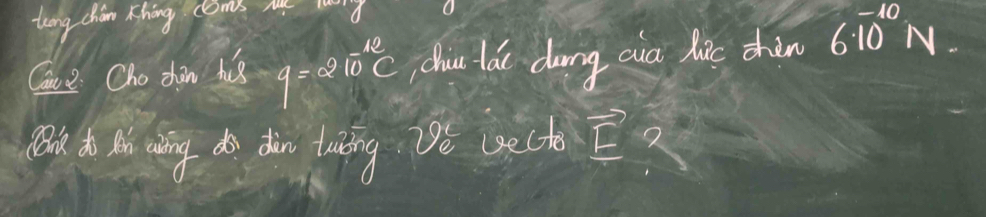 trong chân không.
Câu 2: Cho điện tích q = 2 10⁻¹²C, chịu tác dụng của lực điện 6·10⁻¹⁰ N.
Tính độ lớn cường độ điện trường. Vẽ vectơ E⃗ ?